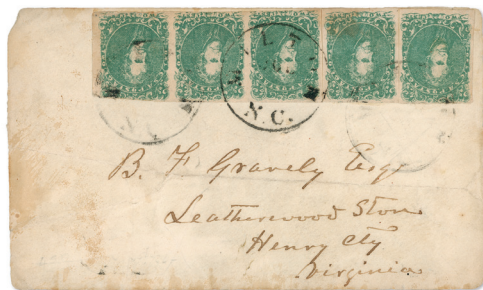 N.C.
B. F Gravely Esqr
Leatherwood Store
Henry Cty
Virginia